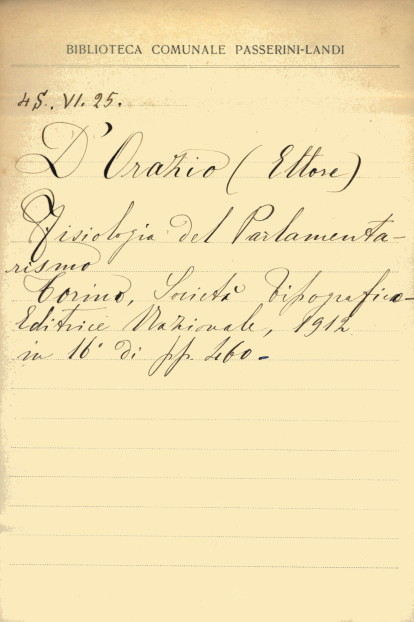 BIBLIOTECA COMUNALE PASSERINI-LANDI
4S. VI. 25.
D'Orazio (Ettore)
Fisiologia del Parlamenta-
rismo
Torino, Società Tipografico-
Editrice Nazionale, 1912
in 16° di pp. 460.-